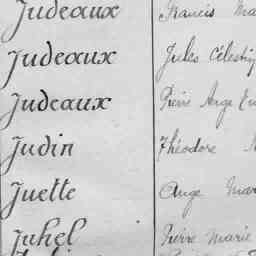 Judeaux Francis Ma
Judeaux Jules Célestin
Judeaux Pierre Ange
Judin Théodore
Juette Ange Mar
Juhel Pierre Marie